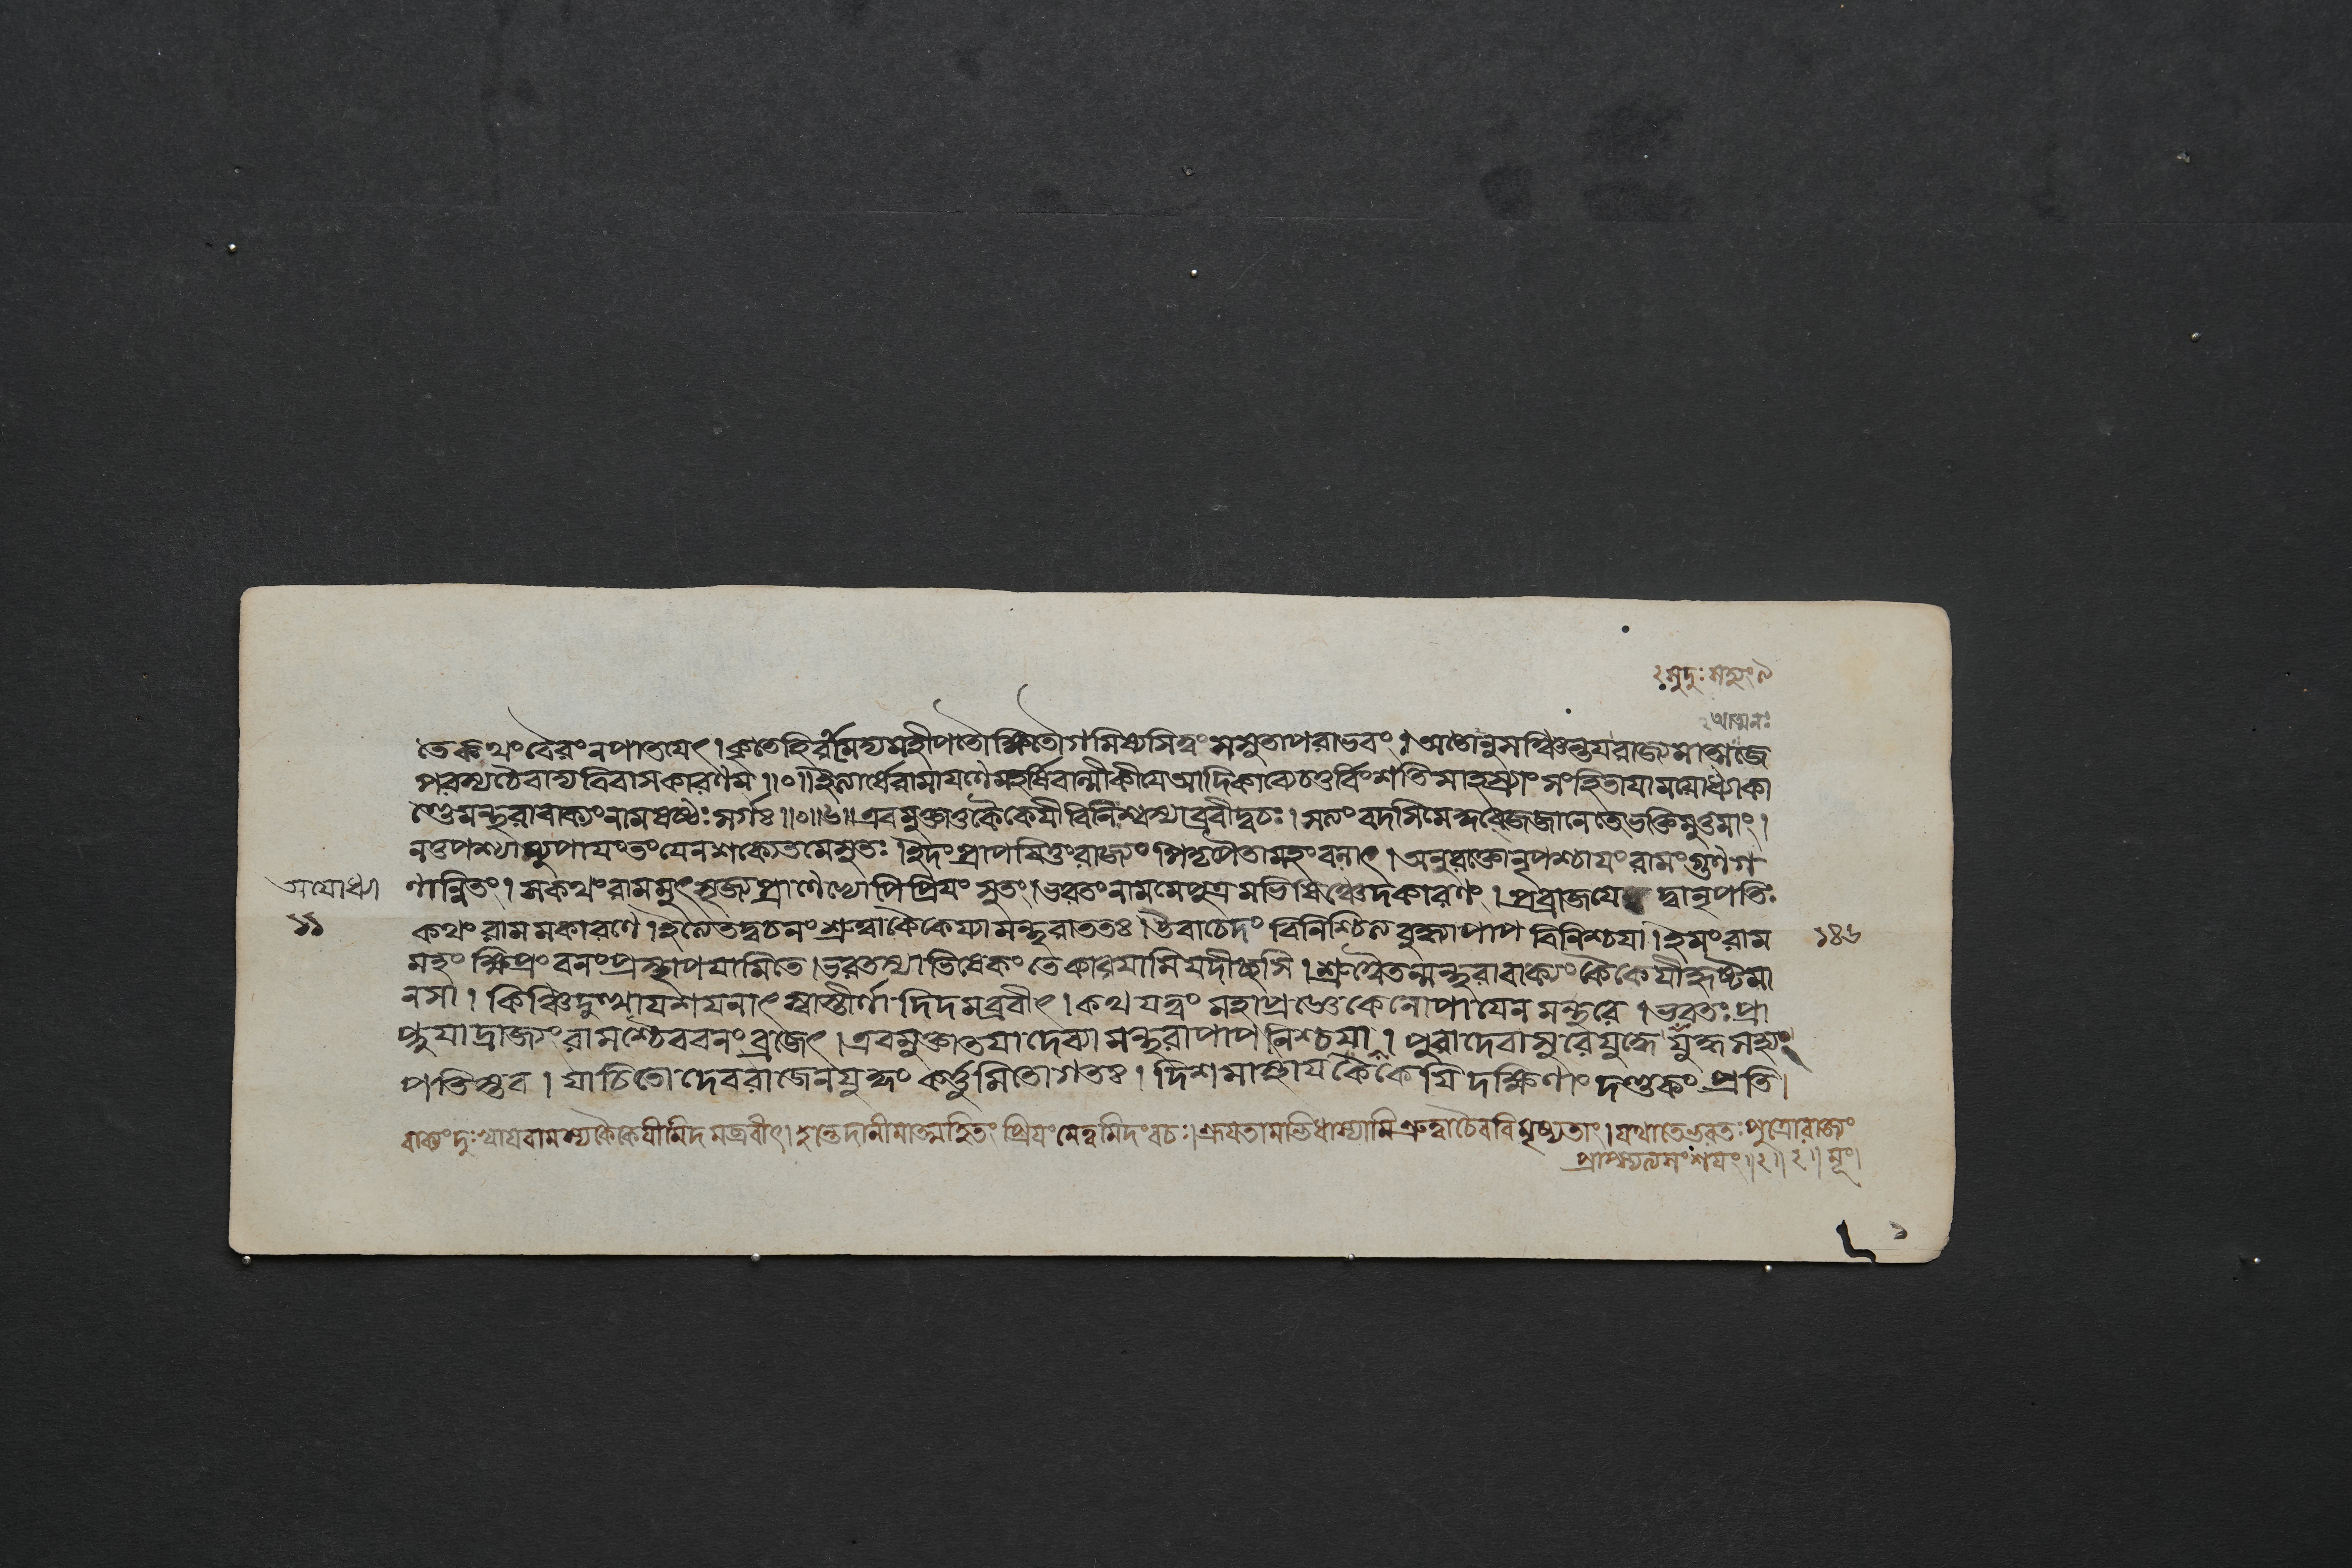 ২ সুদুঃসহং ৯
২ আত্মনঃ
তে কথং বৈরং ন পাতয়েৎ। ধ্রুতে হি রামেদ্য মহীপতৌ ক্ষিতৌ গমিষ্যসি ত্বং সসুতা পরাভবং। অতোনুসঞ্চিন্তয রাজ্যমাত্মজে
পরস্য চৈবাদ্য বিবাসকারণম॥০॥ ইত্যার্ষে রামাযণে মহর্ষিবাল্মীকীযে আদিকাব্যে চতুর্বিংশতিসাহস্র্যাং সংহিতাযামযোধ্যাকা
ণ্ডে মন্থরাবাক্যং নাম ষষ্ঠঃ সর্গঃ॥০॥৬॥ এবমুক্তা তু কৈকেযী বিনিঃশ্বস্যাব্রবীদ্বচঃ। সত্যং বদসি মে কুব্জে জানে তে ভক্তিমুত্তমাং।
ন তু পশ্যাম্যুপাযং তং যেন শক্যেত মে সুতঃ। ইদং প্রাপযিতুং রাজ্যং পিতৃপৈতামহং বলাৎ। অনুরক্তো নৃপশ্চাযং রামং গুণগ
ণান্বিতং। স কথং রামমুৎসৃজ্য প্রাণেভ্যোপি প্রিযং সুতং। ভরতং নাম মে পুত্রমভিষিঞ্চেদকারণং। প্রব্রাজযেদ্বা নৃপতিঃ
অযোধ্যা
১১
কথং রামমকারণে। ইত্যেতদ্বচনং শ্রুত্বা কৈকেয্যা মন্থরা ততঃ। উবাচেদং বিনিশ্চিত্য বুদ্ধ্যা পাপবিনিশ্চযা। ইমং রাম
১৪৬
মহং ক্ষিপ্রং বনং প্রস্থাপযামি তে। ভরতস্যাভিষেকং তে কারযামি যদীচ্ছসি। শ্রুত্বৈতন্মন্থরাবাক্যং কৈকেযী হৃষ্টমা
নসা। কিঞ্চিদুত্থায শযনাৎ স্বাস্তীর্ণাদিদমব্রবীৎ। কথয ত্বং মহাপ্রাজ্ঞে কেনোপাযেন মন্থরে। ভরতঃ প্রা
প্নুযাদ্রাজ্যং রামশ্চৈব বনং ব্রজেৎ। এবমুক্তা তযা দেব্যা মন্থরা পাপনিশ্চযা। পুরা দেবাসুরে যুদ্ধে যুদ্ধসহ্যঃ
পতিস্তব। যাচিতো দেবরাজেন যুদ্ধং কর্ত্তুমিতো গতঃ। দিশমাস্থায কৈকেযি দক্ষিণাং দণ্ডকং প্রতি।
বাক্যং দুঃখায রামস্য কৈকেযীমিদমব্রবীৎ। হন্তেদানীমাত্মহিতং প্রিযং মে ত্বমিদং বচঃ। শ্রূযতামভিধাস্যামি শ্রুত্বা চৈব বিমৃষ্যতাং। যথা তে ভরতঃ পুত্রো রাজ্যং
প্রাপ্স্যত্যসংশযং॥২॥২॥ মূং।
১